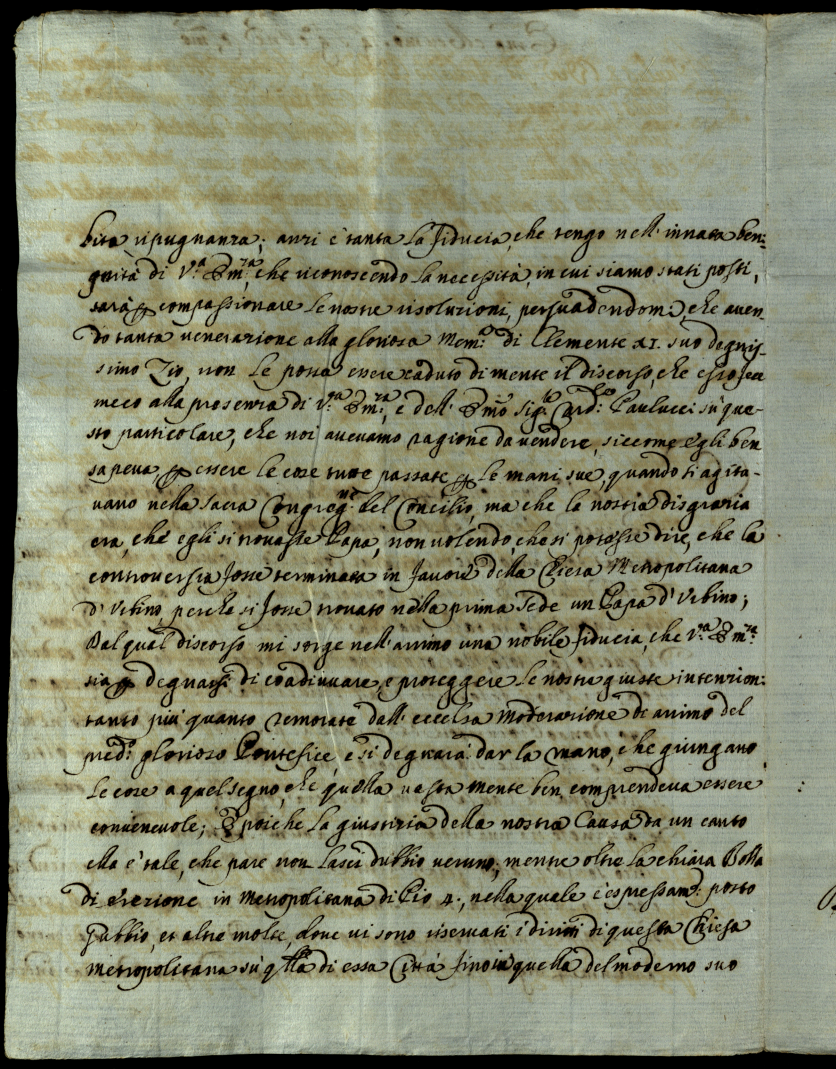 bita ripugnanza; anzi è tanta la fiducia, che tengo nell'innata beni-
gnità di V.ª Em.ª, che riconoscendo la necessità, in cui siamo stati posti,
sarà per compassionare le nostre risoluzioni, persuadendomi, che aven-
do tanta venerazione alla gloriosa Mem.ª di Clemente XI. suo degnis-
simo Zio, non le possa essere caduto di mente il discorso, che esso fece
meco alla presenza di V.ra Em.za, e dell'Em̃o Sig.r Card: Paulucci sù que-
sto particolare, che noi avevamo ragione da vendere, siccome egli ben
sapeva per essere le cose tutte passate per le mani sue, quando si agita-
vano nella Sacra Congreg.ne del Concilio, ma che la nostra disgrazia
era, che egli si trovasse Papa, non volendo, che si potesse dire, che la
controversia fosse terminata in favore della Chiesa Metropolitana
d'Urbino, perche si fosse trovato nella prima Sede un Papa d'Urbino;
Dal qual discorso mi sorge nell'animo una nobile fiducia, che V.ra Em.za
sia per degnarsi di coadiuvare, e proteggere le nostre giuste intenzioni
tanto più quanto remorate dall'eccelsa moderazione de animo del
pred.o glorioso Pontefice, e si degnarà dar la mano, che giungano
le cose a quel segno, che quella vasta mente ben comprendeva essere
convenevole; E poiche la giustizia della nostra Causa da un canto
ella è tale, che pare non lasci dubbio veruno; mentre oltre la chiara Bolla
di erezione in Metropolitana di Pio 4., nella quale è espressam.e posto
Gubbio, et altre molte, dove vi sono riservati i diritti di questa Chiesa
Metropolitana sù q̃lla di essa Città sino in quella del moderno suo